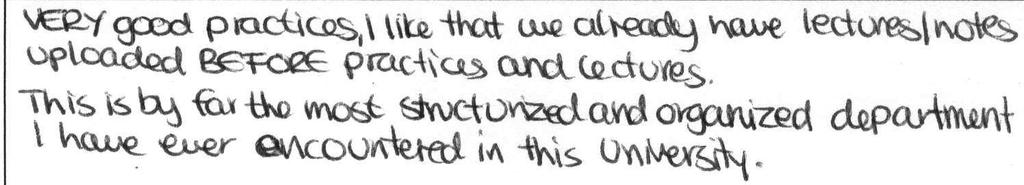 VERY good practices, I like that we already have lectures/notes
uploaded BEFORE practices and lectures.
This is by far the most structurized and organized department
I have ever encountered in this University.